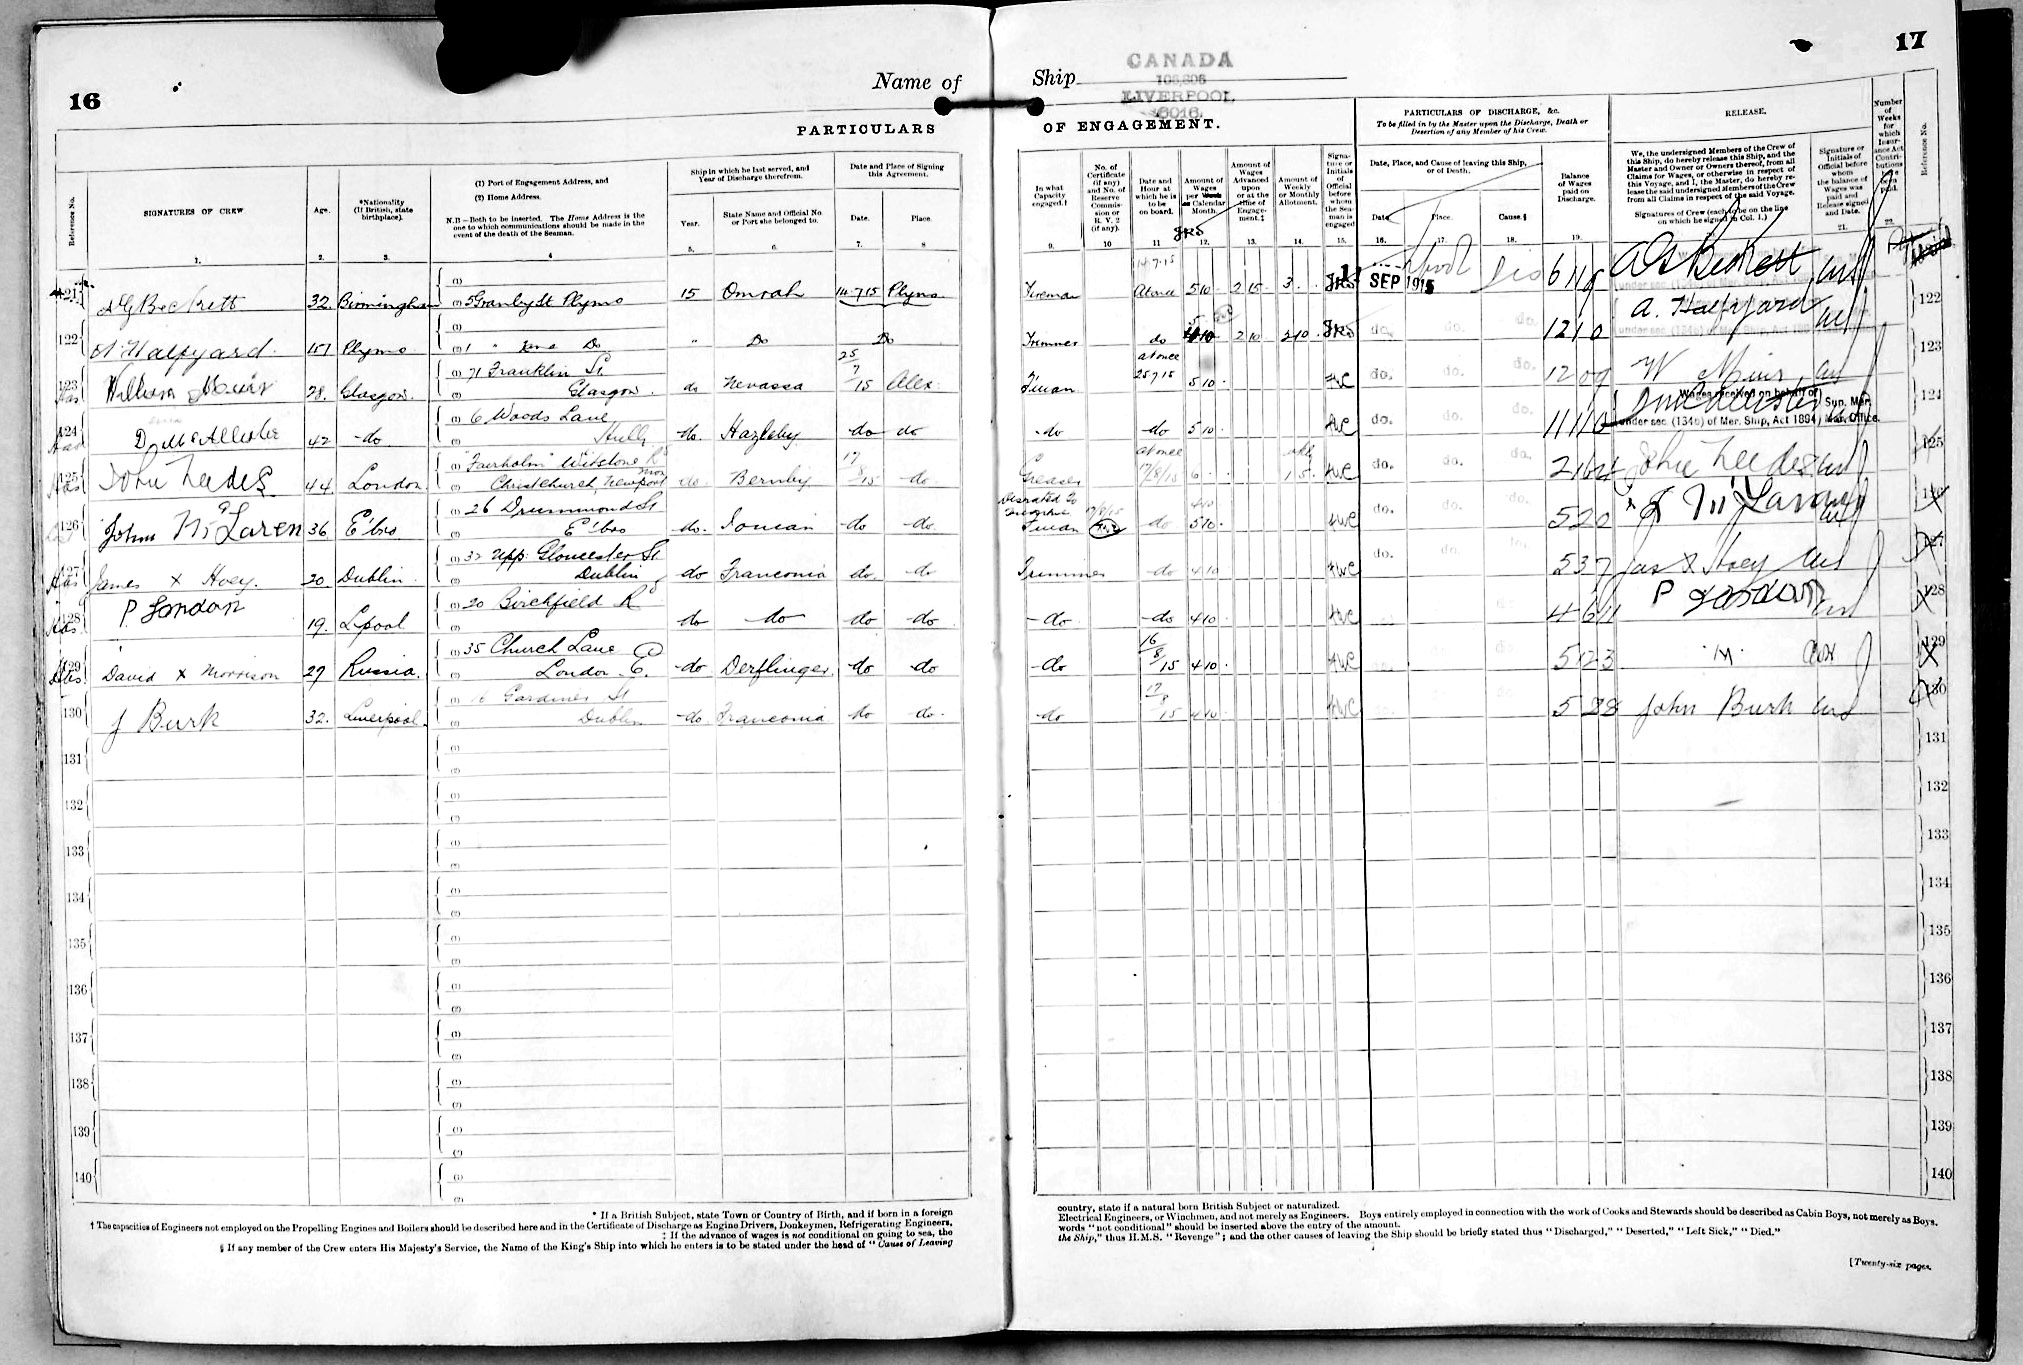 16
Name of
PARTICULARS
Reference No.
SIGNATURES OF CREW
Age.
*Nationality
(If British, state
birthplace).
(1) Port of Engagement Address, and
(2) Home Address.
N.B.—Both to be inserted. The Home Address is the
one to which communications should be made in the
event of the death of the Seaman.
Ship in which he last served, and
Year of Discharge therefrom.
Year.
State Name and Official No.
or Port she belonged to.
Date and Place of Signing
this Agreement.
Date.
Place.
1. 2. 3. 4 5. 6. 7. 8
121 A G Beckett 32 Birmingham (1) (2) 5 Granby St Plymo 15 Omrah 14 7 15 Plymo
122 A. Halfyard Plymo (1) (2) 1 " Do " Do Do
123 William Muir 28. Glasgow. (1) 71 Franklin St (2) Glasgow. do Nevassa 25/7/15 Alex.
124 D McAllister 42 -do (1) 6 Woods Lane (2) Hull -do- Hazleby -do do
125 John Leedes 44 London (1) "Fairholm" Witstone Rd (2) Christchurch, Newport Mon do- Bernby 17/8/15 -do-
126 John McLaren 36 E'bro (1) 26 Drummond St (2) E'bro -do- Ionian -do -do.
127 James x Hoey. 20 Dublin. (1) 32 Upp: Gloucester St (2) Dublin -do Franconia do -do
128 P London 19. Lpool (1) 20 Birchfield Rd (2) do do do -do-
129 David x Morrison 29 Russia. (1) 35 Church Lane (2) London. E. -do Derflinger. -do -do
130 J Burk 32. Liverpool. (1) 16 Gardiner St (2) Dublin -do Franconia do -do-
131 (1) (2)
132 (1) (2)
133 (1) (2)
134 (1) (2)
135 (1) (2)
136 (1) (2)
137 (1) (2)
138 (1) (2)
139 (1) (2)
140 (1) (2)
* If a British Subject, state Town or Country of Birth, and if born in a foreign
† The capacities of Engineers not employed on the Propelling Engines and Boilers should be described here and in the Certificate of Discharge as Engine Drivers, Donkeymen, Refrigerating Engineers,
‡ If the advance of wages is not conditional on going to sea, the
§ If any member of the Crew enters His Majesty's Service, the Name of the King's Ship into which he enters is to be stated under the head of "Cause of Leaving
17
Ship
CANADA
106,606
LIVERPOOL
6016
OF ENGAGEMENT.
In what
Capacity
engaged.†
No. of
Certificate
(if any)
and No. of
Reserve
Commis-
sion or
R. V. 2
(if any).
Date and
Hour at
which he is
to be
on board.
Amount of
Wages
per Week
or Calendar
Month.
Amount of
Wages
Advanced
upon
or at the
time of
Engage-
ment.‡
Amount of
Weekly
or Monthly
Allotment.
Signa-
ture or
Initials
of
Official
before
whom
the Sea-
man is
engaged
PARTICULARS OF DISCHARGE, &c.
To be filled in by the Master upon the Discharge, Death or
Desertion of any Member of his Crew.
Date, Place, and Cause of leaving this Ship,
or of Death.
Date.
Place.
Cause.§
Balance
of Wages
paid on
Discharge.
RELEASE.
We, the undersigned Members of the Crew of
this Ship, do hereby release this Ship, and the
Master and Owner or Owners thereof, from all
Claims for Wages, or otherwise in respect of
this Voyage, and I, the Master, do hereby re-
lease the said undersigned Members of the Crew
from all Claims in respect of the said Voyage.
Signatures of Crew (each to be on the line
on which he signed in Col. 1.)
Signature or
Initials of
Official before
whom
the balance of
Wages was
paid and
Release signed
and Date.
Number
of
Weeks
for
which
Insur-
ance Act
Contri-
butions
were
paid.
Reference No.
9. 10 11 12. 13. 14. 15. 16. 17. 18. 19. 21. 22.
Fireman 14.7.15 At once 5 10 - 2 15 - 3 . JRS 1 SEP 1915 Lpool Dis 6 11 9 A G Beckett
Trimmer do 5 4 10 2 10 2 10 JRS do. do. do. 12 1 0 A. Halfyard 122
F'man at once 25 7 15 5 10 - do. do. do. 12 0 9 W Muir 123
-do -do 5 10 - do. do. do. 11 11 0 Wages received on behalf of Sup. Mer. Mar. Office. under sec (134b) of Mer. Ship. Act 1894 124
Greaser at once 17/8/15 6 - 1 5 - do. do. do. John Leedes 125
Disrated to F'man 17/8/15 do 4 10 5 10 - do. do. do. 5 2 0 McLaren 126
Trimmer do 4 10 do. do. do. 5 3 7 Jas x Hoey 127
-do- -do 4 10 4 6 11 P London 128
-do 16/8/15 4 10 - 5 12 3 M 129
-do 17/8/15 4 10 - John Burk 130
131
132
133
134
135
136
137
138
139
140
country, state if a natural born British Subject or naturalized.
Electrical Engineers, or Winchmen, and not merely as Engineers. Boys entirely employed in connection with the work of Cooks and Stewards should be described as Cabin Boys, not merely as Boys.
words "not conditional" should be inserted above the entry of the amount.
the Ship," thus H.M.S. "Revenge"; and the other causes of leaving the Ship should be briefly stated thus "Discharged," "Deserted," "Left Sick," "Died."
[Twenty-six pages.